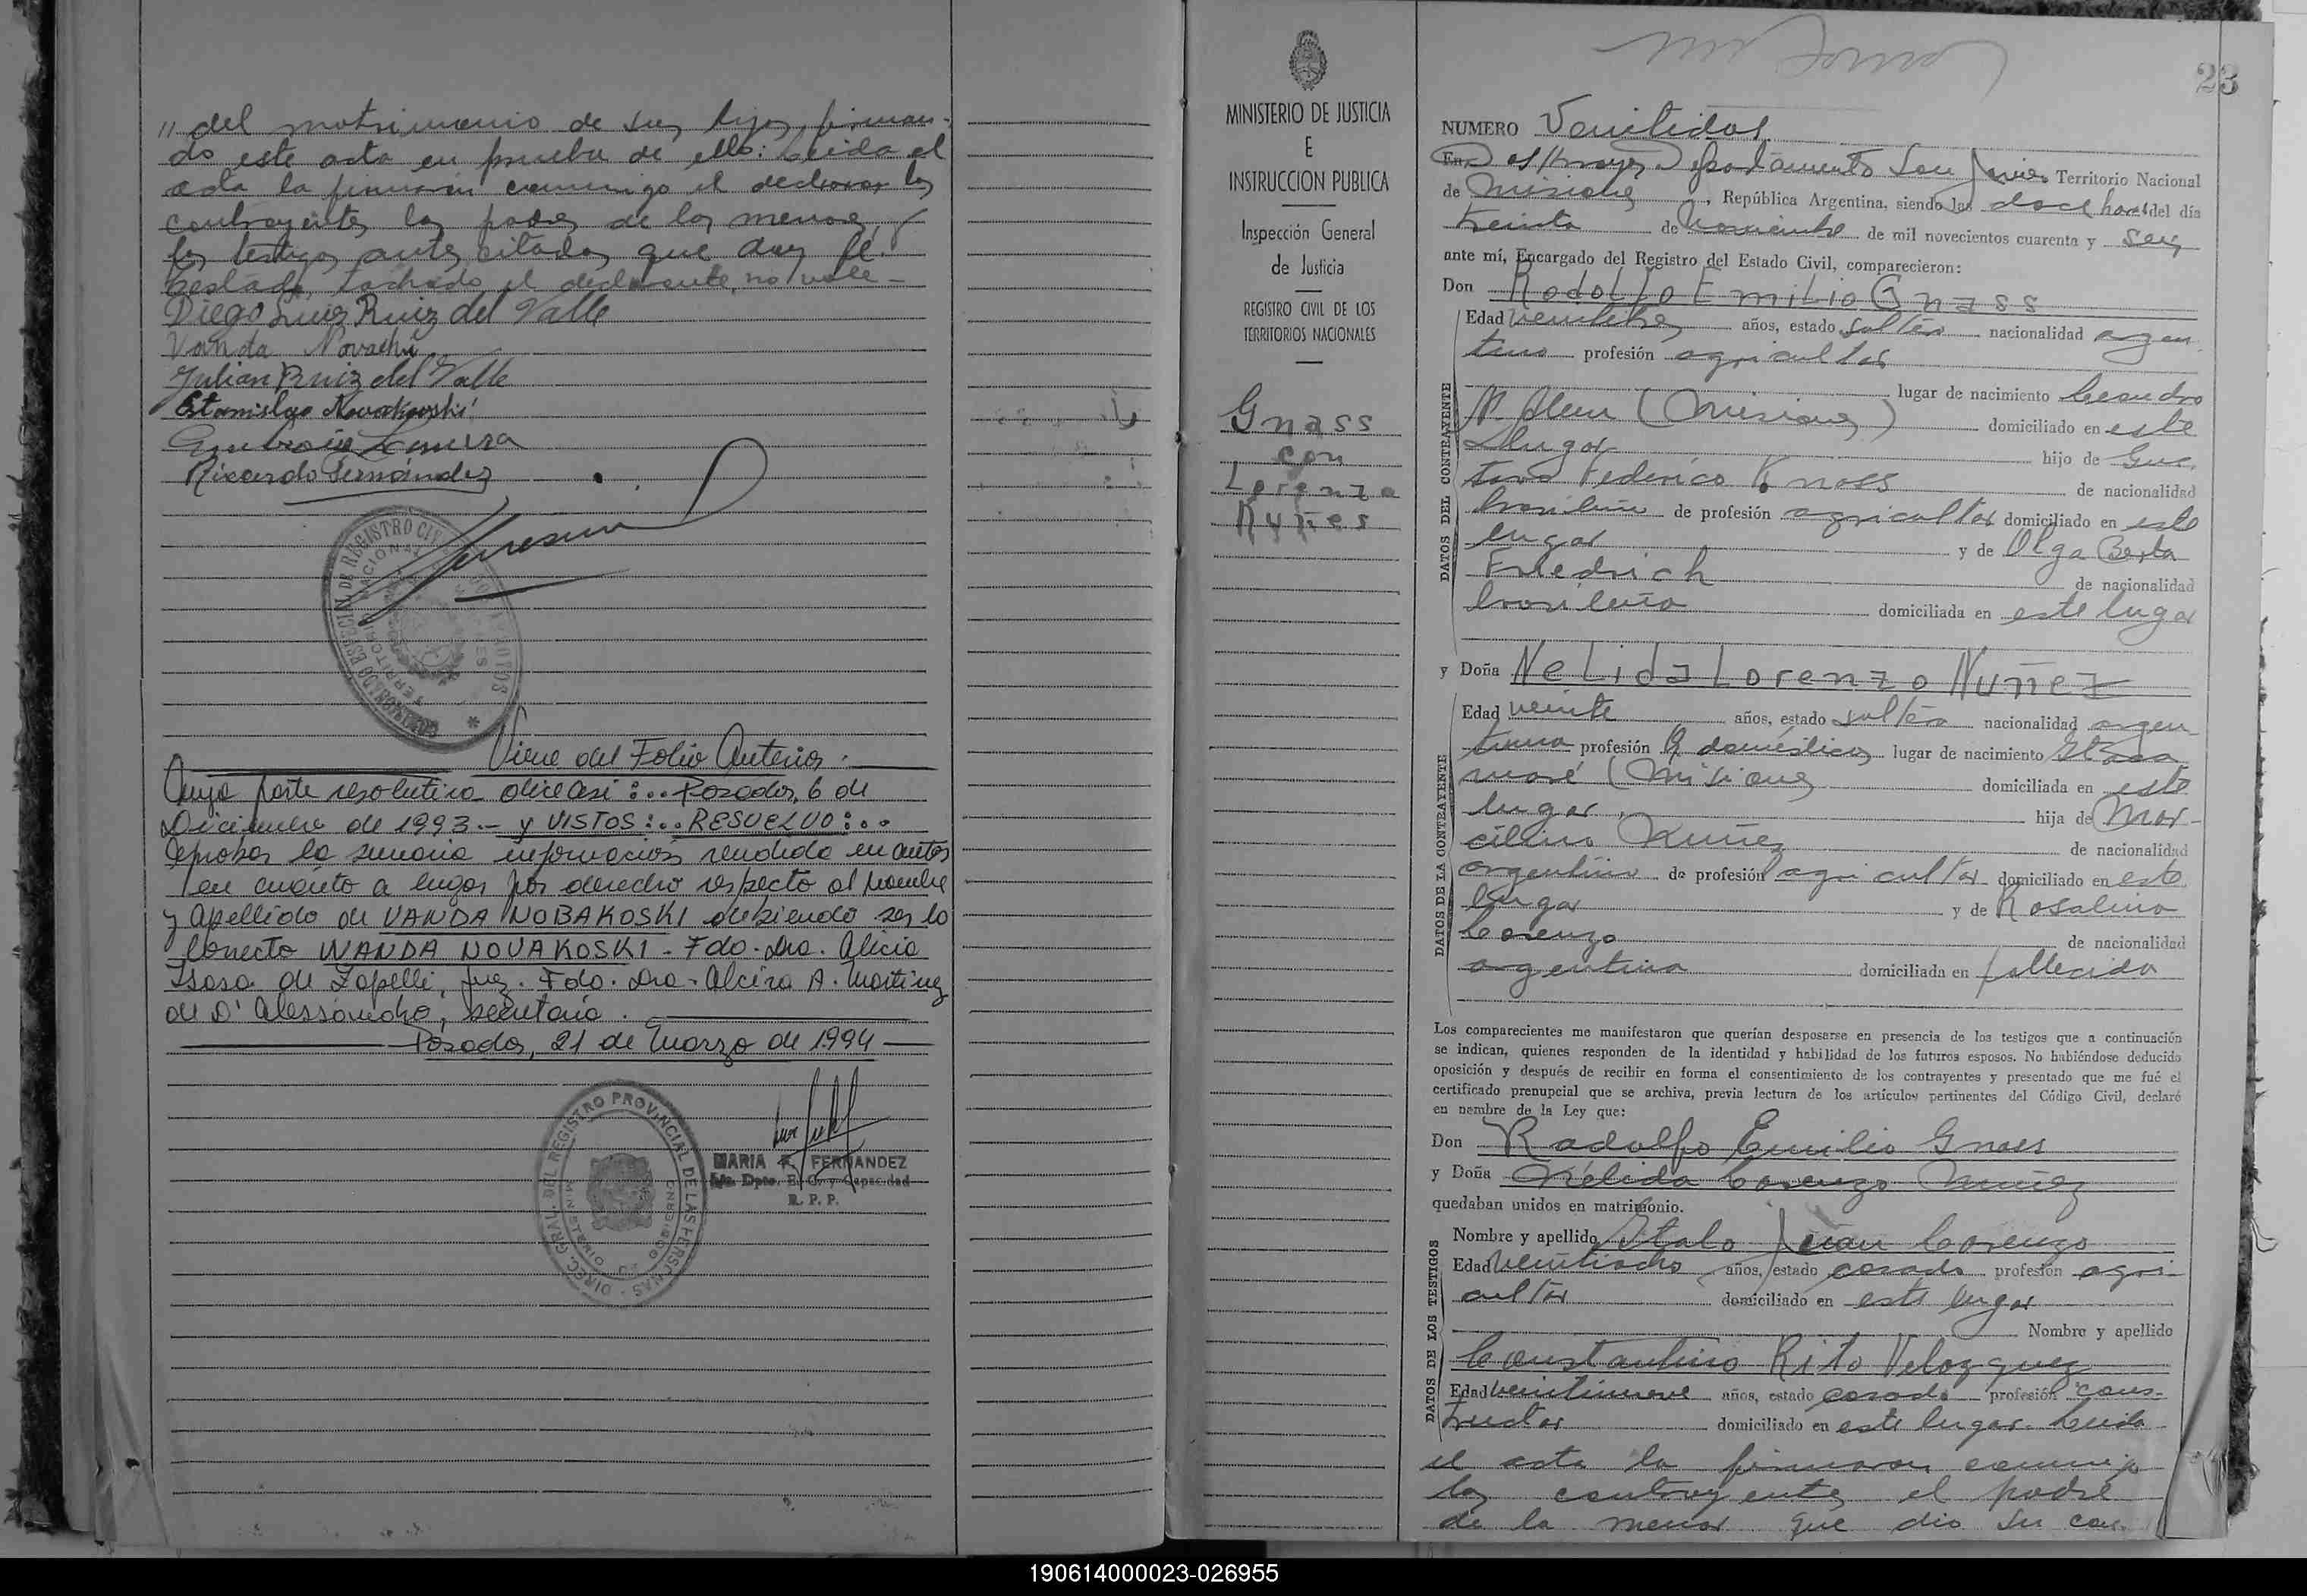 " del matrimonio de sus hijos, firman-
do este acta en prueba de ello: Leida el
acta la firmaron conmigo el declarar los
contrayentes los padres de los menores y
los testigos antes citados que doy fé.
testado, tachado el declarante, no vale-
Diego Luiz Ruiz del Valle
Vanda
Julian Ruiz del Valle
Estanislao
Ricardo Fernández
Viene del Folio Anterior.
Cuya parte resolutiva dice asi:... Posadas, 6 de
Diciembre de 1993.- y VISTOS:.. RESUELVO:..
Aprobar la sumaria información rendida en autos
en cuanto a lugar por derecho respecto al nombre
y apellido de VANDA NOBAKOSKI debiendo ser lo
correcto WANDA NOVAKOSKI. Fdo. Dra. Alicia
de Zapelli, Juez. Fdo. Dra. Alcira A. Martinez
de D'Alessandro, secretaria.
Posadas, 21 de Marzo de 1994
DIREC. GRAL. DEL REGISTRO PROVINCIAL DE LAS PERSONAS
MARIA FERNANDEZ
R. P. P.
MINISTERIO DE JUSTICIA
E
INSTRUCCION PUBLICA
Inspección General
de Justicia
REGISTRO CIVIL DE LOS
TERRITORIOS NACIONALES
Gnass
con
Lorenzo
23
NUMERO Veintidos
En Departamento San Javier Territorio Nacional
de Misiones, República Argentina, siendo las doce horas del día
treinta de Noviembre de mil novecientos cuarenta y seis
ante mí, Encargado del Registro del Estado Civil, comparecieron:
Don Rodolfo Emilio Gnass
DATOS DEL CONTRAYENTE
Edad veintitres años, estado soltero nacionalidad argen-
tino profesión agricultor
lugar de nacimiento Leandro
N. Alem (Misiones) domiciliado en este
lugar hijo de Gus
tavo Federico Knass de nacionalidad
brasileño de profesión agricultor domiciliado en este
lugar y de Olga Berta
Friedrich de nacionalidad
brasileña domiciliada en este lugar
y Doña Nelida Lorenzo Nuñez
DATOS DE LA CONTRAYENTE
Edad veinte años, estado soltera nacionalidad argen
tina profesión Q. domésticos lugar de nacimiento Itaca
ruaré (Misiones) domiciliada en este
lugar hija de Mar-
celino Nuñez de nacionalidad
argentino de profesión agricultor domiciliado en este
lugar y de Rosalina
Lorenzo de nacionalidad
argentina domiciliada en fallecida
Los comparecientes me manifestaron que querían desposarse en presencia de los testigos que a continuación
se indican, quienes responden de la identidad y habilidad de los futuros esposos. No habiéndose deducido
oposición y después de recibir en forma el consentimiento de los contrayentes y presentado que me fué el
certificado prenupcial que se archiva, previa lectura de los artículos pertinentes del Código Civil, declaré
en nombre de la Ley que:
Don Rodolfo Emilio Gnass
y Doña Nélida Lorenzo Nuñez
quedaban unidos en matrimonio.
DATOS DE LOS TESTIGOS
Nombre y apellido Italo Juan Lorenzo
Edad veintiocho años, estado casado profesión agri-
cultor domiciliado en este lugar
Nombre y apellido
Constantino Rito Velozquez
Edad veintinueve años, estado casado profesión cons-
tructor domiciliado en este lugar. Leida
el acta la firmaron conmigo
los contrayentes el padre
de la menor que dio su con-
190614000023-026955